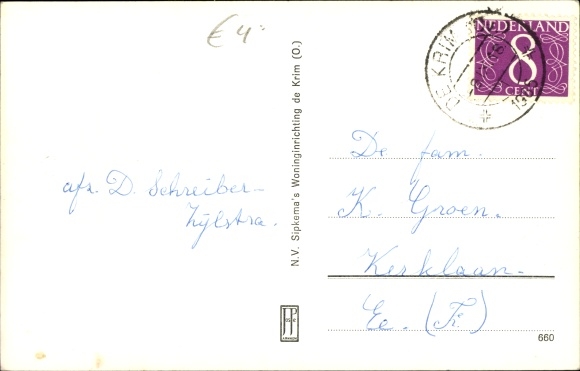 € 4,-
NEDERLAND
8
CENT
DE KRIM
afz. D. Schreiber-
Zijlstra.
N.V. Sipkema's Woninginrichting de Krim (O.)
De fam.
K. Groen.
Kerklaan.
Ee. (Fr.)
660